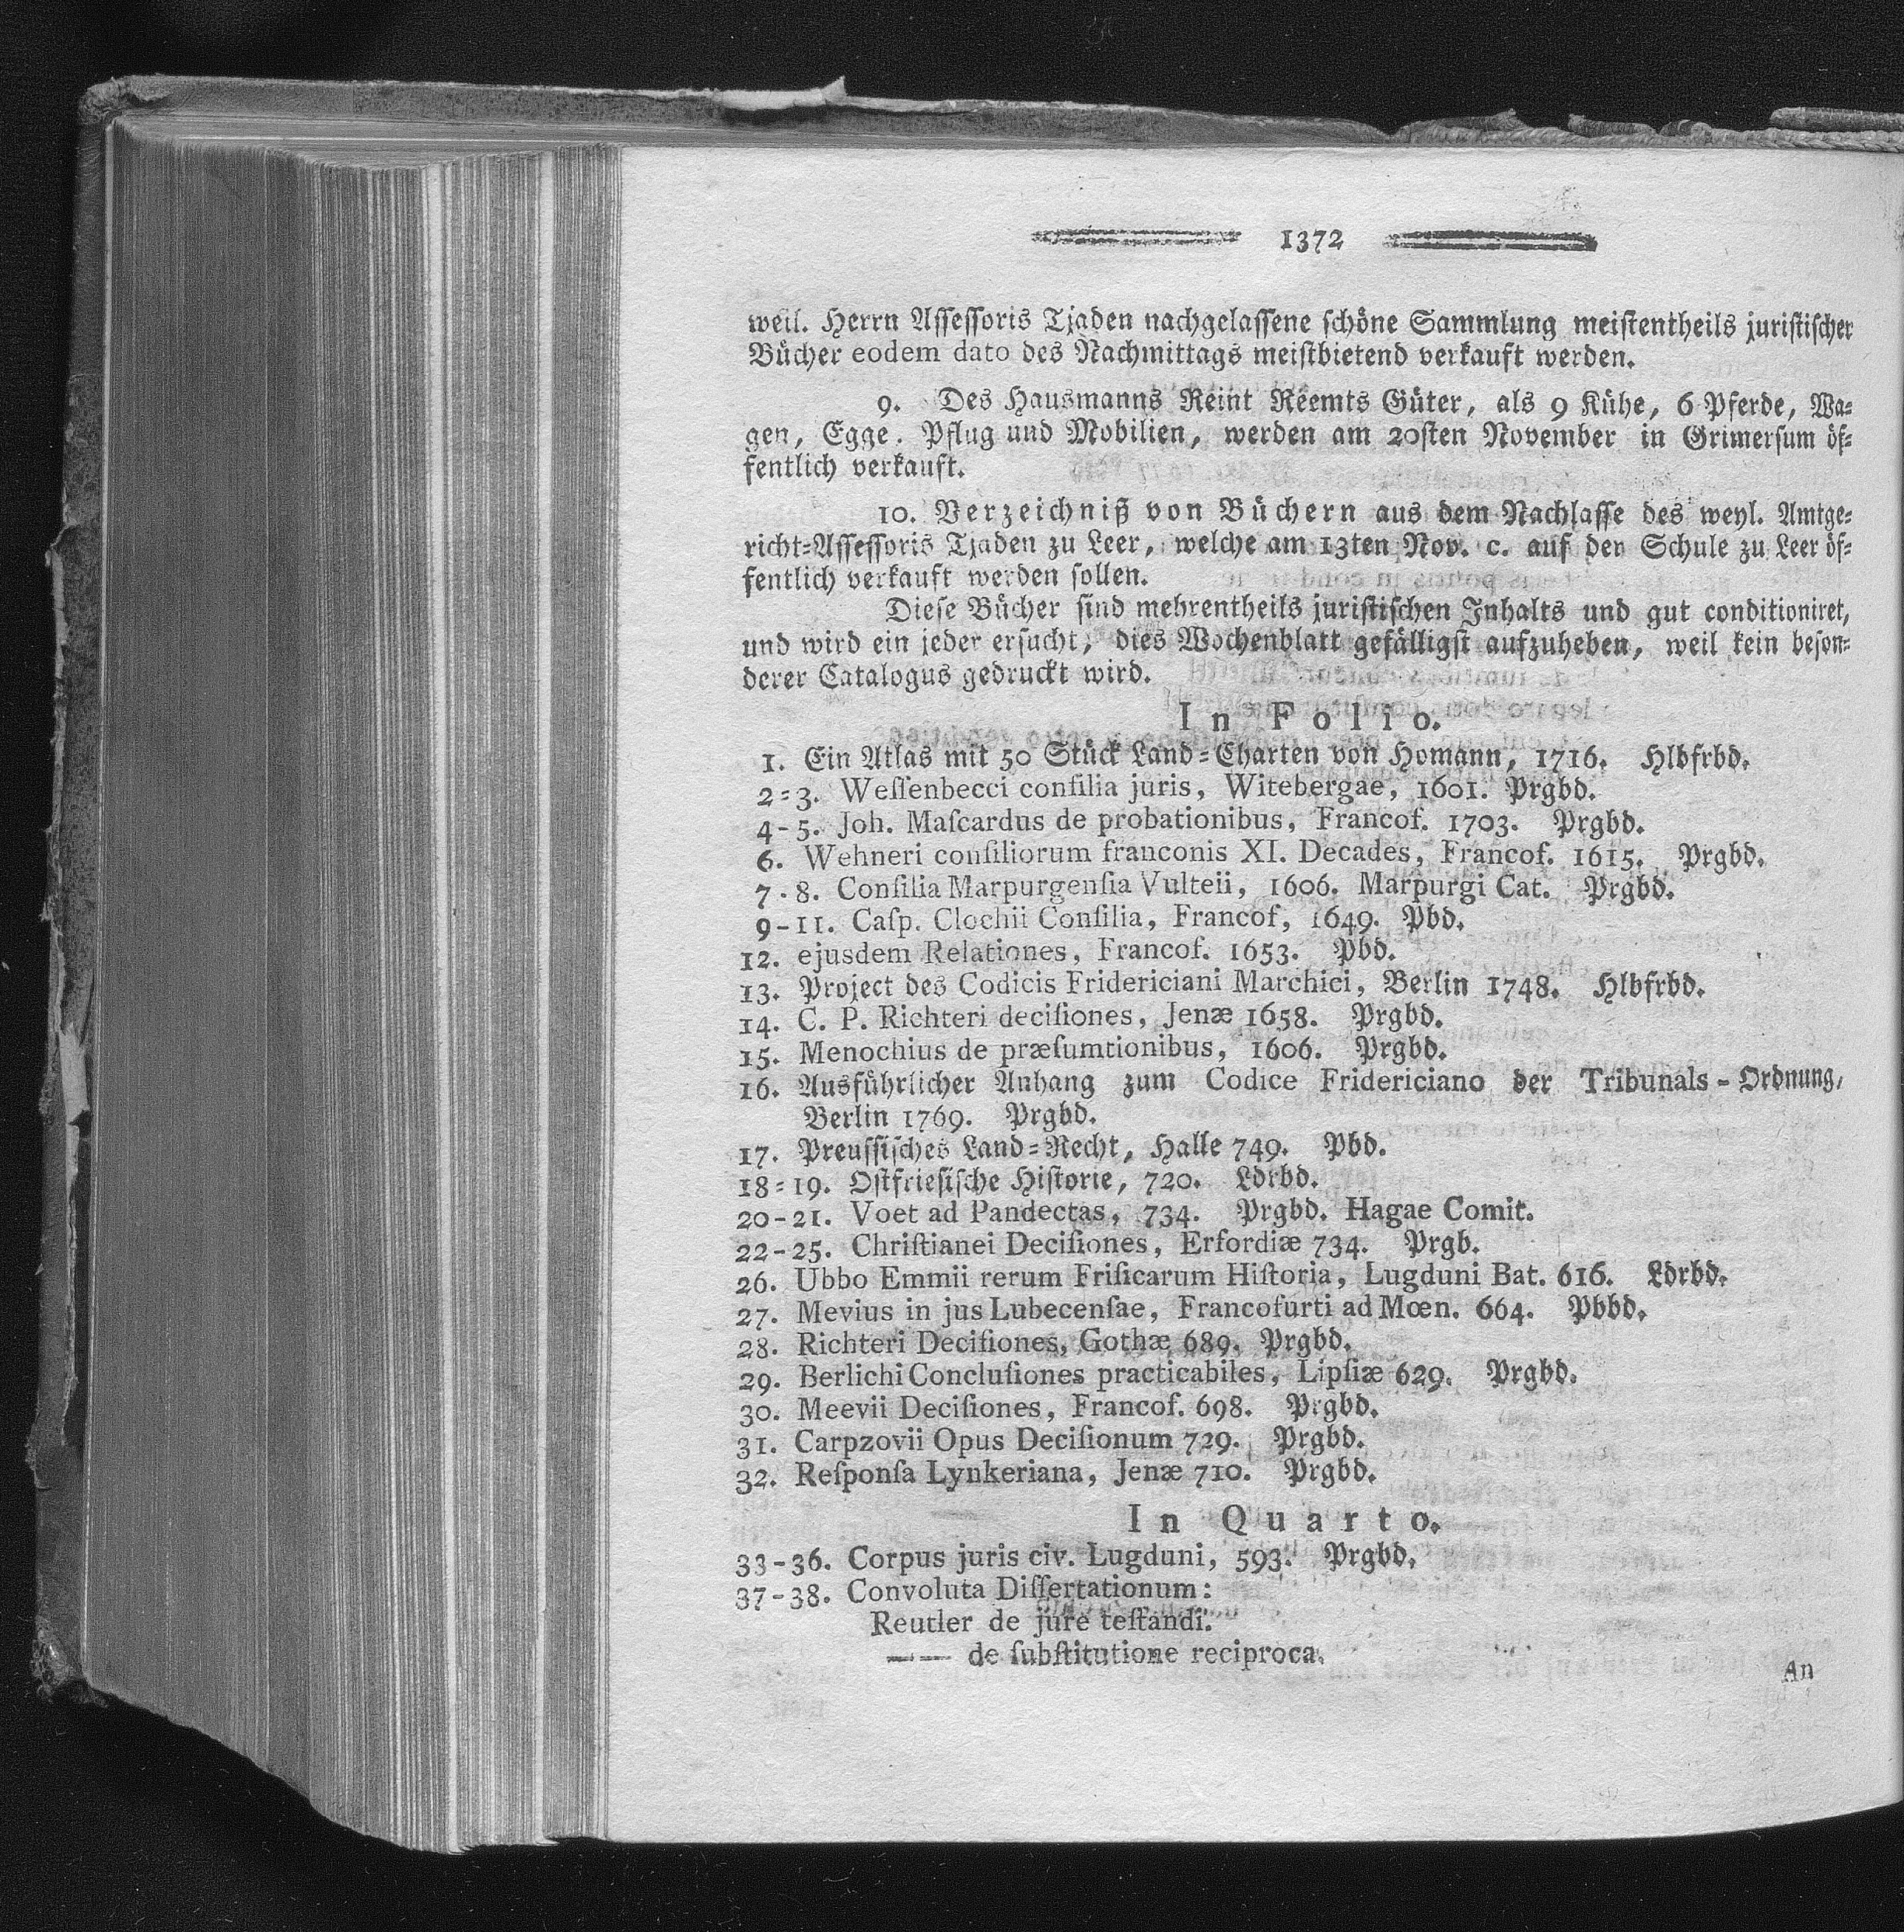 1372
weil. Herrn Assessoris Tjaden nachgelassene schöne Sammlung meistentheils juristischer
Bücher eodem dato des Nachmittags meistbietend verkauft werden.
9. Des Hausmanns Reint Reemts Güter, als 9 Kühe, 6 Pferde, Wa-
gen, Egge, Pflug und Mobilien, werden am 20sten November in Grimersum öf-
fentlich verkauft.
10. Verzeichniß von Büchern aus dem Nachlasse des weyl. Amtge-
richt-Assessoris Tjaden zu Leer, welche am 13ten Nov. c. auf der Schule zu Leer öf-
fentlich verkauft werden sollen.
Diese Bücher sind mehrentheils juristischen Inhalts und gut conditioniret,
und wird ein jeder ersucht, dies Wochenblatt gefälligst aufzuheben, weil kein beson-
derer Catalogus gedruckt wird.
In Folio.
1. Ein Atlas mit 50 Stück Land-Charten von Homann, 1716. Hlbfrbd.
2-3. Weſſenbecci conſilia juris, Witebergae, 1601. Prgbd.
4-5. Joh. Maſcardus de probationibus, Francof. 1703. Prgbd.
6. Wehneri conſiliorum franconis XI. Decades, Francof. 1615. Prgbd.
7-8. Conſilia Marpurgenſia Vulteii, 1606. Marpurgi Cat. Prgbd.
9-11. Caſp. Clochii Conſilia, Francof, 1649. Pbd.
12. ejusdem Relationes, Francof. 1653. Pbd.
13. Project des Codicis Fridericiani Marchici, Berlin 1748. Hlbfrbd.
14. C. P. Richteri deciſiones, Jenæ 1658. Prgbd.
15. Menochius de præſumtionibus, 1606. Prgbd.
16. Ausführlicher Anhang zum Codice Fridericiano der Tribunals-Ordnung,
Berlin 1769. Prgbd.
17. Preussisches Land-Recht, Halle 749. Pbd.
18-19. Ostfriesische Historie, 720. Ldrbd.
20-21. Voet ad Pandectas, 734. Prgbd. Hagae Comit.
22-25. Chriſtianei Deciſiones, Erfordiæ 734. Prgb.
26. Ubbo Emmii rerum Friſicarum Hiſtoria, Lugduni Bat. 616. Ldrbd.
27. Mevius in jus Lubecenſae, Francofurti ad Mœn. 664. Pbbd.
28. Richteri Deciſiones, Gothæ 689. Prgbd.
29. Berlichi Concluſiones practicabiles, Lipſiæ 629. Prgbd.
30. Meevii Deciſiones, Francof. 698. Prgbd.
31. Carpzovii Opus Deciſionum 729. Prgbd.
32. Reſponſa Lynkeriana, Jenæ 710. Prgbd.
In Quarto.
33-36. Corpus juris civ. Lugduni, 593. Prgbd.
37-38. Convoluta Diſſertationum:
Reutler de jure teſtandi.
—— de ſubſtitutione reciproca.
An